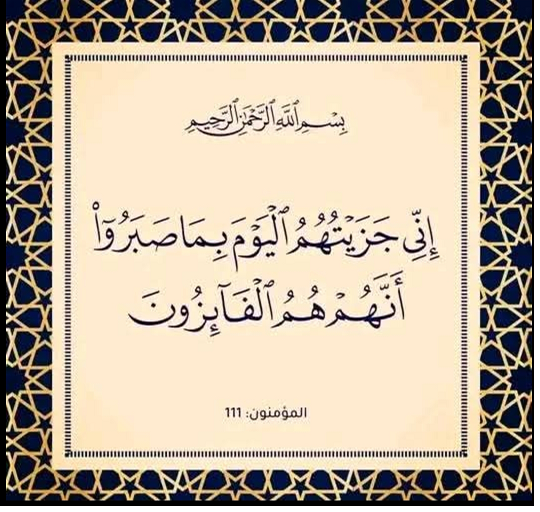 بِسْمِ ٱللَّهِ ٱلرَّحْمَٰنِ ٱلرَّحِيمِ
إِنِّي جَزَيْتُهُمُ ٱلْيَوْمَ بِمَا صَبَرُوٓا۟
أَنَّهُمْ هُمُ ٱلْفَآئِزُونَ
المؤمنون: 111